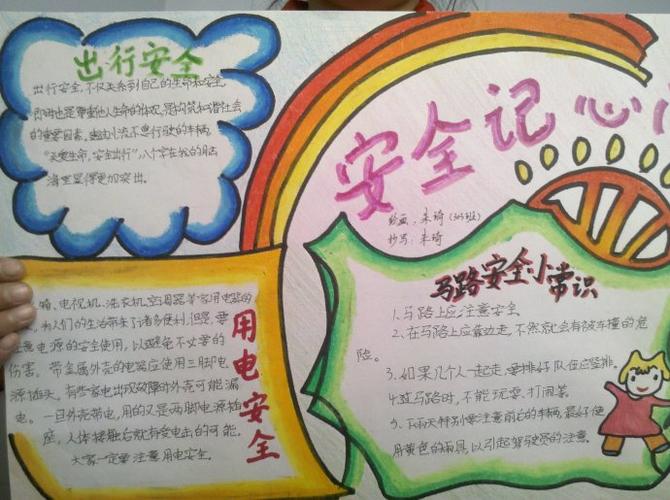 出行安全
出行安全,不仅关系到自己的生命和安全,
即时也是尊重他人生命的体现,是构筑和谐社会
的重要因素,
行驶的车辆,
"关爱生命,安全出行",八个字在我的脑
海里显得更加突出。
安全记心
绘画:朱琦(303班)
抄写:朱琦
箱、电视机、洗衣机、空调器等家用电器的
为人们的生活带来了诸多便利,但是,要
注意电源的安全使用,以避免不必要的
伤害。带金属外壳的电器应使用三脚电
源插头。有些家电出现故障时外壳可能漏
电。一旦外壳带电,用的又是两脚电源插
座,人体接触后就有受电击的可能。
大家一定要注意用电安全。
用电安全
马路安全小常识
1.马路上应注意安全
2、在马路上应靠边走,不然就会有被车撞的危
险。
3、如果几个人一起走,要排好队伍应竖排。
4.过马路时,不能玩耍、打闹等
5、下雨天特别要注意前右的车辆,最好使
用黄色的雨具,以引起驾驶员的注意。